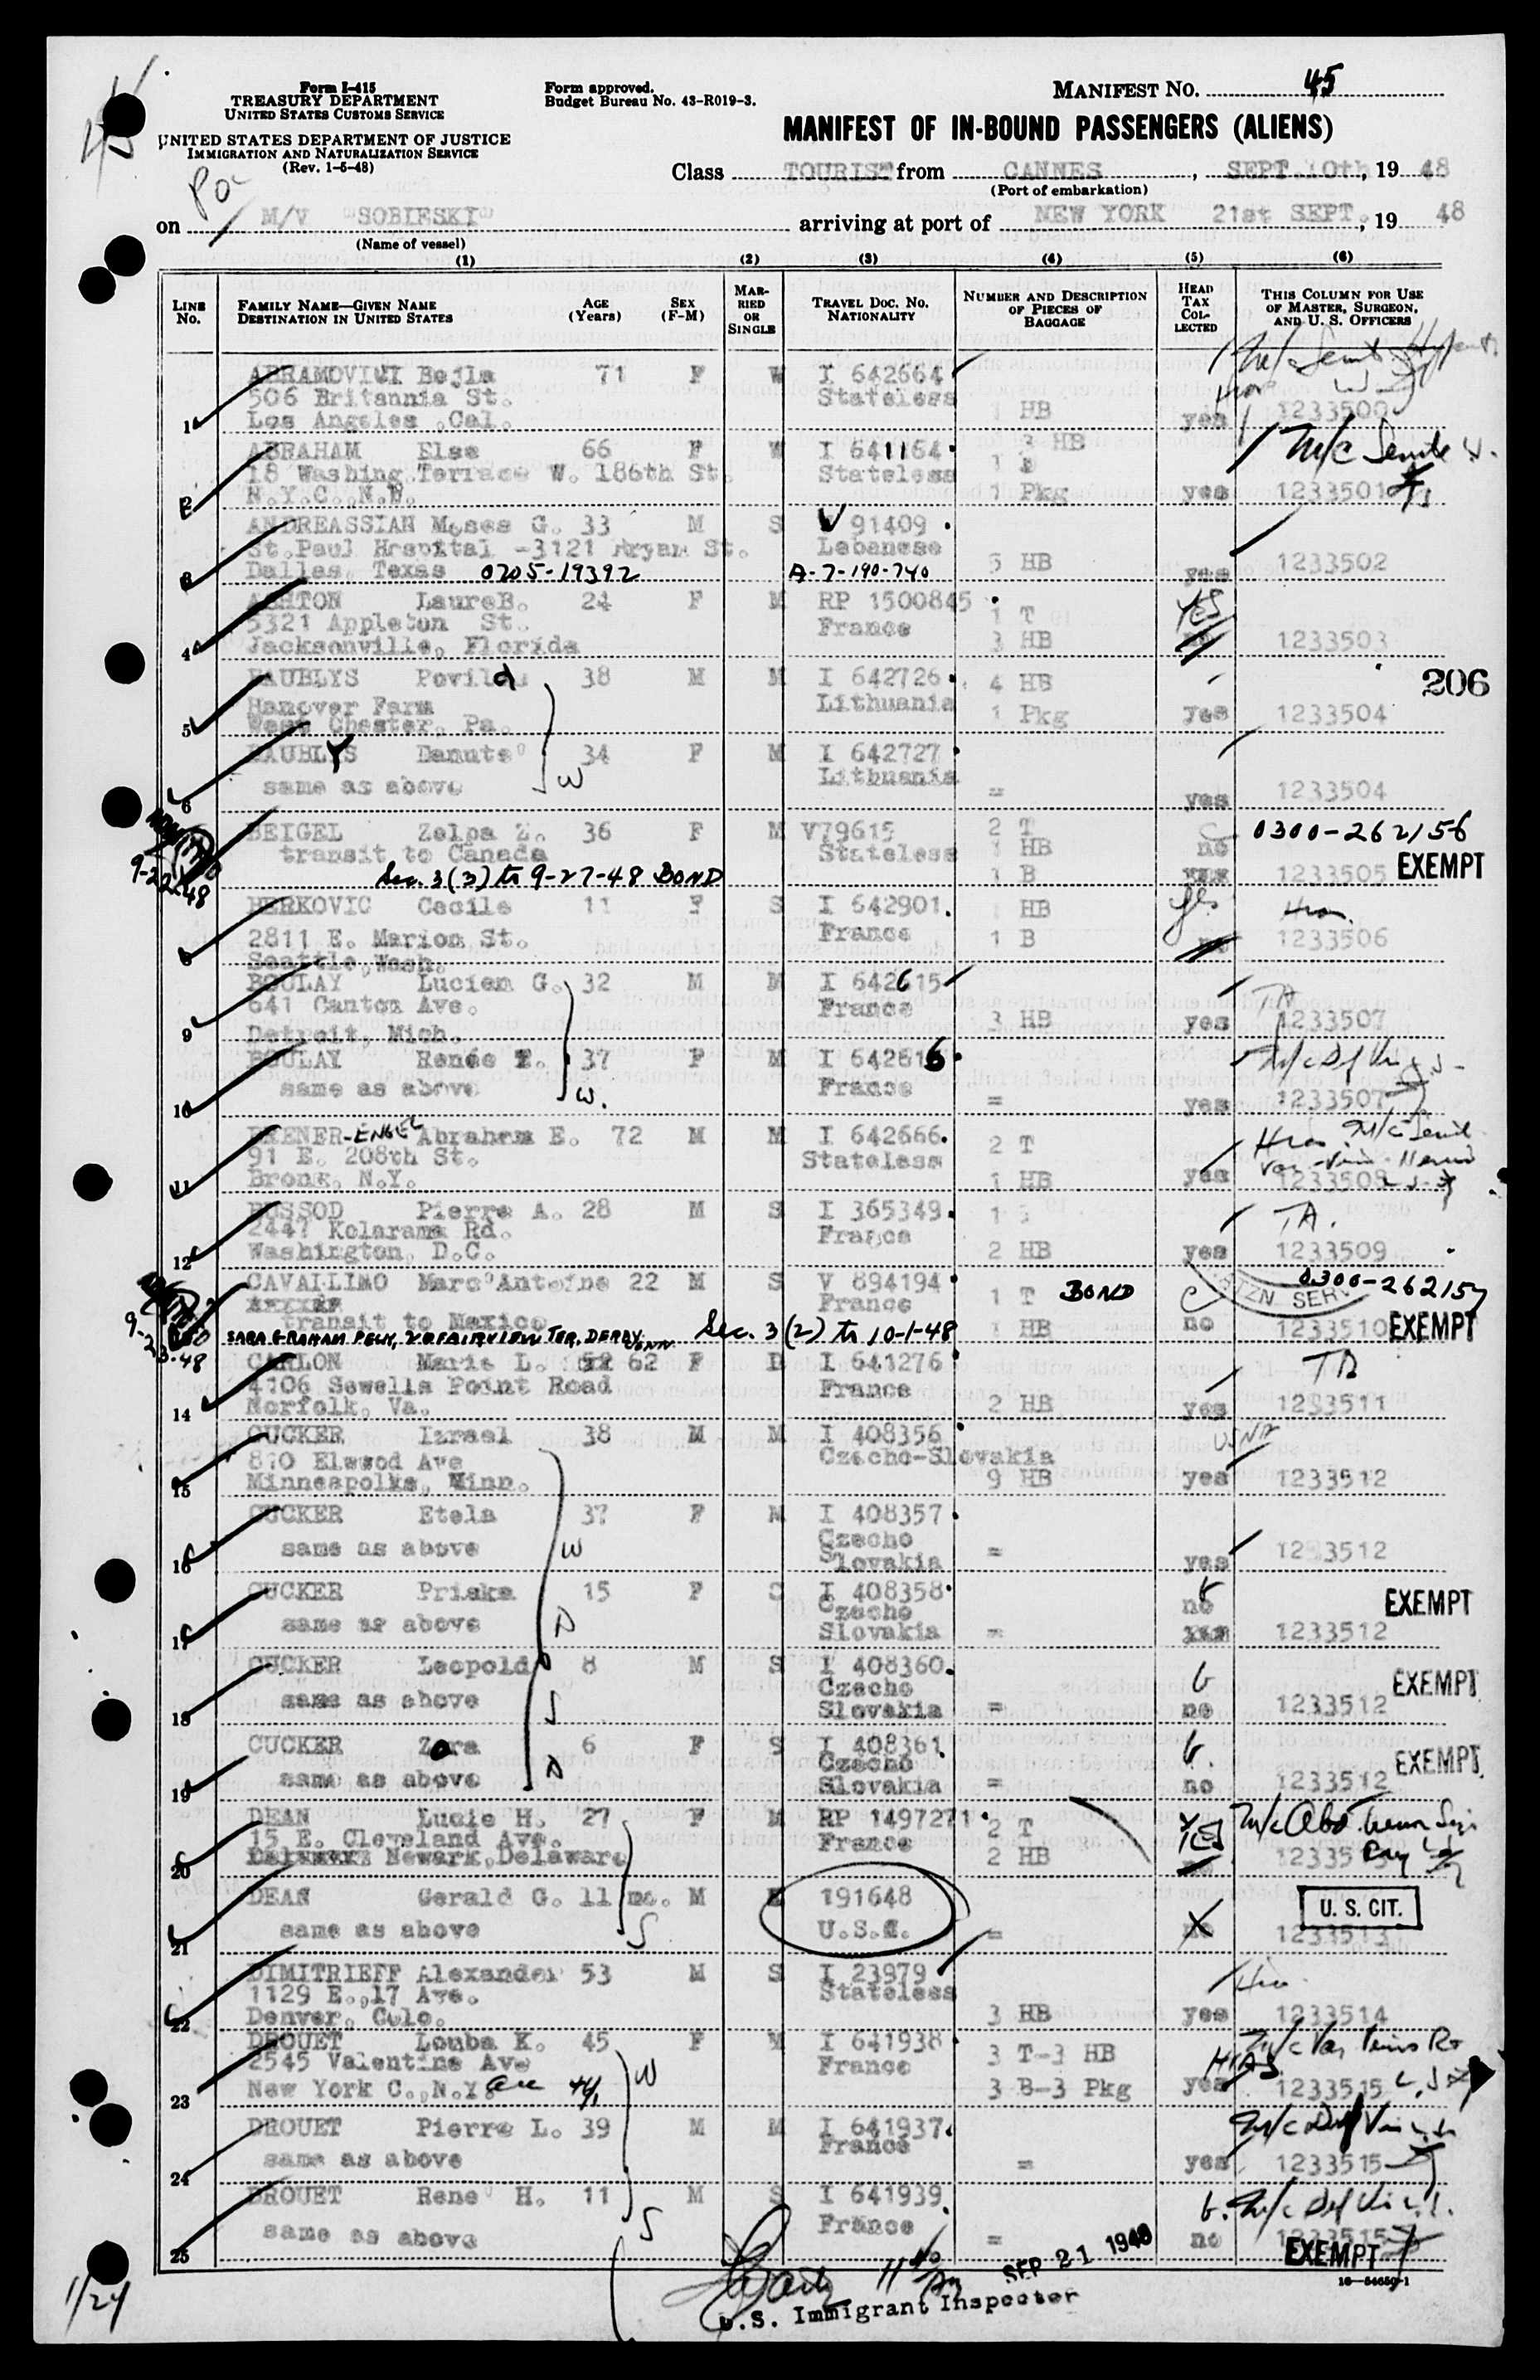 45
Form I-415
TREASURY DEPARTMENT
UNITED STATES CUSTOMS SERVICE
UNITED STATES DEPARTMENT OF JUSTICE
IMMIGRATION AND NATURALIZATION SERVICE
(Rev. 1-5-48)
Form approved.
Budget Bureau No. 43-R019-3.
MANIFEST No. 45
MANIFEST OF IN-BOUND PASSENGERS (ALIENS)
Class TOURIST from CANNES, SEPT. 10th, 19 48
(Port of embarkation)
on M/V "SOBIESKI" arriving at port of NEW YORK 21st SEPT., 19 48
(Name of vessel)
(1) (2) (3) (4) (5) (6)
LINE No.
FAMILY NAME—GIVEN NAME DESTINATION IN UNITED STATES
AGE (Years)
SEX (F-M)
MARRIED OR SINGLE
TRAVEL DOC. NO. NATIONALITY
NUMBER AND DESCRIPTION OF PIECES OF BAGGAGE
HEAD TAX COLLECTED
THIS COLUMN FOR USE OF MASTER, SURGEON, AND U. S. OFFICERS
ABRAMOVICI Bejla 71 F W I 642664
506 Britannia St. Stateless 1 HB
1 Los Angeles, Cal. yes 1233500
ABRAHAM Elsa 66 F W I 641164 3 HB
18 Washing.Terrace W. 186th St. Stateless
2 N.Y.C., N.Y. 1 Pkg yes 1233501
ANDREASSIAN Moses G. 33 M S V 91409
St.Paul Hospital -3121 Bryan St. Lebanese 5 HB
3 Dallas, Texas 0205-19392 A-7-190-740 yes 1233502
ASHTON LaureB. 24 F M RP 1500845 1 T YES
5321 Appleton St. France
4 Jacksonville, Florida 3 HB 1233503
BAUBLYS Povilas 38 M M I 642726 4 HB
206
Hanover Farm Lithuania
5 West Chester, Pa. 1 Pkg yes 1233504
BAUBLYS Danute 34 F M I 642727
Lithuania
6 same as above W = yes 1233504
BEIGEL Zelpa Z. 36 F M V79615 2 T 0300-262156
transit to Canada Stateless 1 HB no
9-22-48 Sec. 3(3) to 9-27-48 BOND 1 B 1233505 EXEMPT
BERKOVIC Cecile 11 F S I 642901 1 HB yes
2811 E. Marion St. France 1 B no 1233506
8 Seattle, Wash.
BOULAY Lucien G. 32 M M I 642615
641 Canton Ave. France
9 Detroit, Mich. 3 HB yes 1233507
BOULAY Renée T. 37 F M I 642616
same as above France
10 W. = yes 1233507
BRENER-ENGEL Abraham E. 72 M M I 642666 2 T
91 E. 208th St. Stateless
11 Bronx, N.Y. 1 HB yes 1233508
BUSSOD Pierre A. 28 M S I 365349 TA.
2447 Kolarama Rd. France
12 Washington, D.C. 2 HB yes 1233509
CAVALLIMO Marc Antoine 22 M S V 894194 1 T BOND 0300-262157
France
transit to Mexico 1 HB no 1233510 EXEMPT
SARA GRAHAM Sec. 3(2) to 10-1-48
CARLON Marie L. 62 F D I 641276 TA
4106 Sewells Point Road France
14 Norfolk, Va. 2 HB yes 1233511
CUCKER Izrael 38 M M I 408356
810 Elwood Ave Czecho-Slovakia
15 Minneapolks, Minn. 9 HB yes 1233512
CUCKER Etela 37 F M I 408357
same as above W Czecho
16 Slovakia = yes 1233512
CUCKER Priska 15 F S I 408358 EXEMPT
same as above D Czecho no
17 Slovakia = 1233512
CUCKER Leopold 8 M S I 408360 EXEMPT
same as above S Czecho
18 Slovakia = no 1233512
CUCKER Zora 6 F S I 408361 EXEMPT
same as above Czecho
19 Slovakia = no 1233512
DEAN Lucie H. 27 F M RP 1497271 2 T YES
15 E. Cleveland Ave. France
20 Newark,Delaware 2 HB
DEAN Gerald G. 11 mo. M 191648 U. S. CIT.
21 same as above S U.S.A. = no 1233513
DIMITRIEFF Alexander 53 M S I 23979
1129 E.,17 Ave. Stateless
22 Denver, Colo. 3 HB yes 1233514
DROUET Louba K. 45 F M I 641938
2545 Valentine Ave France 3 T-3 HB HIAS
23 New York C.,N.Y. W 3 B-3 Pkg yes 1233515
DROUET Pierre L. 39 M M I 641937
France
24 same as above = yes 1233515
DROUET Rene H. 11 M S I 641939
25 same as above S France = no 1233515 EXEMPT
SEP 21 1948
16—54650-1
U.S. Immigrant Inspector
1/24